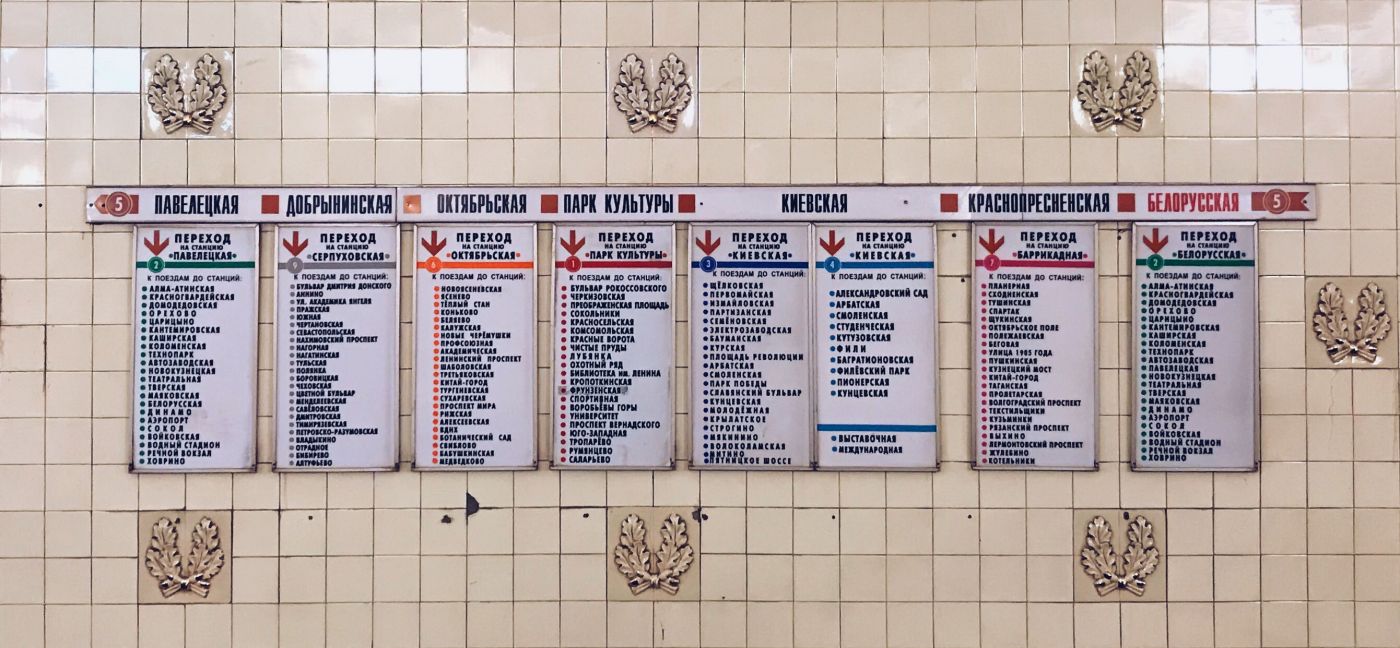 5 ПАВЕЛЕЦКАЯ ДОБРЫНИНСКАЯ ОКТЯБРЬСКАЯ ПАРК КУЛЬТУРЫ КИЕВСКАЯ КРАСНОПРЕСНЕНСКАЯ БЕЛОРУССКАЯ 5
ПЕРЕХОД
НА СТАНЦИЮ
«ПАВЕЛЕЦКАЯ»
2
К ПОЕЗДАМ ДО СТАНЦИЙ:
АЛМА-АТИНСКАЯ
КРАСНОГВАРДЕЙСКАЯ
ДОМОДЕДОВСКАЯ
ОРЕХОВО
ЦАРИЦЫНО
КАНТЕМИРОВСКАЯ
КАШИРСКАЯ
КОЛОМЕНСКАЯ
ТЕХНОПАРК
АВТОЗАВОДСКАЯ
НОВОКУЗНЕЦКАЯ
ТЕАТРАЛЬНАЯ
ТВЕРСКАЯ
МАЯКОВСКАЯ
БЕЛОРУССКАЯ
ДИНАМО
АЭРОПОРТ
СОКОЛ
ВОЙКОВСКАЯ
ВОДНЫЙ СТАДИОН
РЕЧНОЙ ВОКЗАЛ
ХОВРИНО
ПЕРЕХОД
НА СТАНЦИЮ
«СЕРПУХОВСКАЯ»
9
К ПОЕЗДАМ ДО СТАНЦИЙ:
БУЛЬВАР ДМИТРИЯ ДОНСКОГО
АННИНО
УЛ. АКАДЕМИКА ЯНГЕЛЯ
ПРАЖСКАЯ
ЮЖНАЯ
ЧЕРТАНОВСКАЯ
СЕВАСТОПОЛЬСКАЯ
НАХИМОВСКИЙ ПРОСПЕКТ
НАГОРНАЯ
НАГАТИНСКАЯ
ТУЛЬСКАЯ
ПОЛЯНКА
БОРОВИЦКАЯ
ЧЕХОВСКАЯ
ЦВЕТНОЙ БУЛЬВАР
МЕНДЕЛЕЕВСКАЯ
САВЁЛОВСКАЯ
ДМИТРОВСКАЯ
ТИМИРЯЗЕВСКАЯ
ПЕТРОВСКО-РАЗУМОВСКАЯ
ВЛАДЫКИНО
ОТРАДНОЕ
БИБИРЕВО
АЛТУФЬЕВО
ПЕРЕХОД
НА СТАНЦИЮ
«ОКТЯБРЬСКАЯ»
6
К ПОЕЗДАМ ДО СТАНЦИЙ:
НОВОЯСЕНЕВСКАЯ
ЯСЕНЕВО
ТЁПЛЫЙ СТАН
КОНЬКОВО
БЕЛЯЕВО
КАЛУЖСКАЯ
НОВЫЕ ЧЕРЁМУШКИ
ПРОФСОЮЗНАЯ
АКАДЕМИЧЕСКАЯ
ЛЕНИНСКИЙ ПРОСПЕКТ
ШАБОЛОВСКАЯ
ТРЕТЬЯКОВСКАЯ
КИТАЙ-ГОРОД
ТУРГЕНЕВСКАЯ
СУХАРЕВСКАЯ
ПРОСПЕКТ МИРА
РИЖСКАЯ
АЛЕКСЕЕВСКАЯ
ВДНХ
БОТАНИЧЕСКИЙ САД
СВИБЛОВО
БАБУШКИНСКАЯ
МЕДВЕДКОВО
ПЕРЕХОД
НА СТАНЦИЮ
«ПАРК КУЛЬТУРЫ»
1
К ПОЕЗДАМ ДО СТАНЦИЙ:
БУЛЬВАР РОКОССОВСКОГО
ЧЕРКИЗОВСКАЯ
ПРЕОБРАЖЕНСКАЯ ПЛОЩАДЬ
СОКОЛЬНИКИ
КРАСНОСЕЛЬСКАЯ
КОМСОМОЛЬСКАЯ
КРАСНЫЕ ВОРОТА
ЧИСТЫЕ ПРУДЫ
ЛУБЯНКА
ОХОТНЫЙ РЯД
БИБЛИОТЕКА ИМ. ЛЕНИНА
КРОПОТКИНСКАЯ
ФРУНЗЕНСКАЯ
СПОРТИВНАЯ
ВОРОБЬЁВЫ ГОРЫ
УНИВЕРСИТЕТ
ПРОСПЕКТ ВЕРНАДСКОГО
ЮГО-ЗАПАДНАЯ
ТРОПАРЁВО
РУМЯНЦЕВО
САЛАРЬЕВО
ПЕРЕХОД
НА СТАНЦИЮ
«КИЕВСКАЯ»
3
К ПОЕЗДАМ ДО СТАНЦИЙ:
ЩЁЛКОВСКАЯ
ПЕРВОМАЙСКАЯ
ИЗМАЙЛОВСКАЯ
ПАРТИЗАНСКАЯ
СЕМЁНОВСКАЯ
ЭЛЕКТРОЗАВОДСКАЯ
БАУМАНСКАЯ
КУРСКАЯ
ПЛОЩАДЬ РЕВОЛЮЦИИ
АРБАТСКАЯ
СМОЛЕНСКАЯ
ПАРК ПОБЕДЫ
СЛАВЯНСКИЙ БУЛЬВАР
КУНЦЕВСКАЯ
МОЛОДЁЖНАЯ
КРЫЛАТСКОЕ
СТРОГИНО
МЯКИНИНО
ВОЛОКОЛАМСКАЯ
МИТИНО
ПЯТНИЦКОЕ ШОССЕ
ПЕРЕХОД
НА СТАНЦИЮ
«КИЕВСКАЯ»
4
К ПОЕЗДАМ ДО СТАНЦИЙ:
АЛЕКСАНДРОВСКИЙ САД
АРБАТСКАЯ
СМОЛЕНСКАЯ
СТУДЕНЧЕСКАЯ
КУТУЗОВСКАЯ
ФИЛИ
БАГРАТИОНОВСКАЯ
ФИЛЁВСКИЙ ПАРК
ПИОНЕРСКАЯ
КУНЦЕВСКАЯ
ВЫСТАВОЧНАЯ
МЕЖДУНАРОДНАЯ
ПЕРЕХОД
НА СТАНЦИЮ
«БАРРИКАДНАЯ»
7
К ПОЕЗДАМ ДО СТАНЦИЙ:
ПЛАНЕРНАЯ
СХОДНЕНСКАЯ
ТУШИНСКАЯ
СПАРТАК
ЩУКИНСКАЯ
ОКТЯБРЬСКОЕ ПОЛЕ
ПОЛЕЖАЕВСКАЯ
БЕГОВАЯ
УЛИЦА 1905 ГОДА
ПУШКИНСКАЯ
КУЗНЕЦКИЙ МОСТ
КИТАЙ-ГОРОД
ТАГАНСКАЯ
ПРОЛЕТАРСКАЯ
ВОЛГОГРАДСКИЙ ПРОСПЕКТ
ТЕКСТИЛЬЩИКИ
КУЗЬМИНКИ
РЯЗАНСКИЙ ПРОСПЕКТ
ВЫХИНО
ЛЕРМОНТОВСКИЙ ПРОСПЕКТ
ЖУЛЕБИНО
КОТЕЛЬНИКИ
ПЕРЕХОД
НА СТАНЦИЮ
«БЕЛОРУССКАЯ»
2
К ПОЕЗДАМ ДО СТАНЦИЙ:
АЛМА-АТИНСКАЯ
КРАСНОГВАРДЕЙСКАЯ
ДОМОДЕДОВСКАЯ
ОРЕХОВО
ЦАРИЦЫНО
КАНТЕМИРОВСКАЯ
КАШИРСКАЯ
КОЛОМЕНСКАЯ
ТЕХНОПАРК
АВТОЗАВОДСКАЯ
ПАВЕЛЕЦКАЯ
НОВОКУЗНЕЦКАЯ
ТЕАТРАЛЬНАЯ
ТВЕРСКАЯ
МАЯКОВСКАЯ
ДИНАМО
АЭРОПОРТ
СОКОЛ
ВОЙКОВСКАЯ
ВОДНЫЙ СТАДИОН
РЕЧНОЙ ВОКЗАЛ
ХОВРИНО